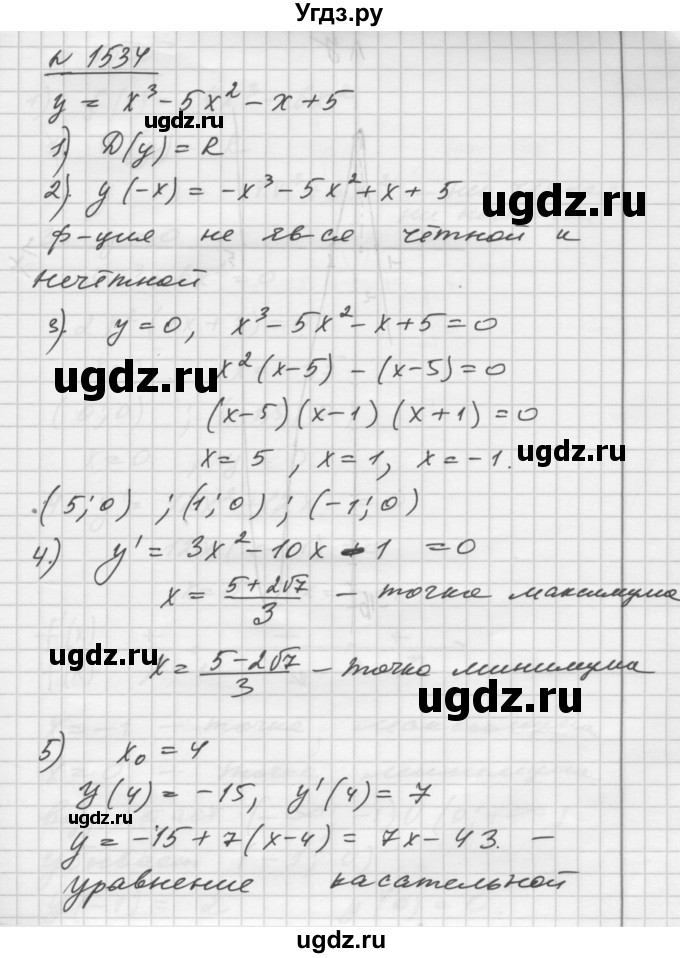 Угдз.ру
N 1534
y = x³ - 5x² - x + 5
ugdz.ru
1). D(y) = R
2). y(-x) = -x³ - 5x² + x + 5
ugdz.ru
ф-ция не яв-ся чётной и
нечётной
3). y = 0, x³ - 5x² - x + 5 = 0
ugdz.ru
x²(x-5) - (x-5) = 0
(x-5)(x-1)(x+1) = 0
ugdz.ru
x = 5, x = 1, x = -1.
(5; 0) ; (1; 0) ; (-1; 0)
4.) y' = 3x² - 10x - 1 = 0
ugdz.ru
x = (5+2√7)/3 - точка максимума
ugdz.ru
x = (5-2√7)/3 - точка минимума
ugdz.ru
5) x₀ = 4
y(4) = -15, y'(4) = 7
ugdz.ru
y = -15 + 7(x-4) = 7x - 43. -
уравнение касательной
ugdz.ru
ugdz.ru